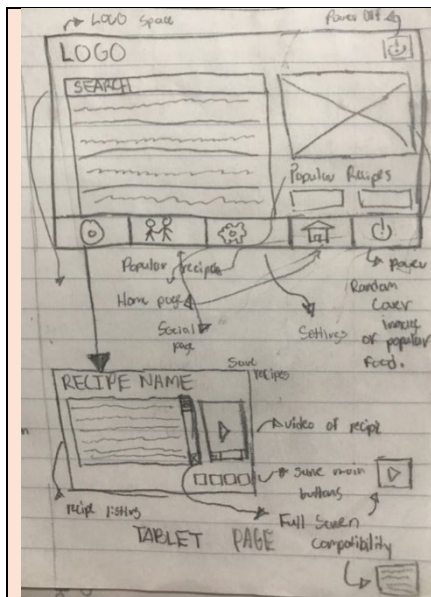 LOGO Space
Power Off
LOGO
SEARCH
Popular Recipes
Popular recipes
Power
Home page
Social page
Settings
Random
Cover
image
of popular
Food.
Save
recipes
RECIPE NAME
video of recipe
same main
buttons
recipe listing
Full Screen
compatibility
TABLET PAGE